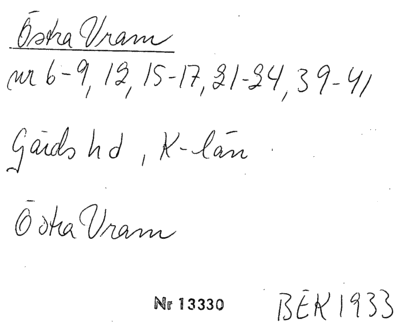 Östra Vram
nr 6-9, 12, 15-17, 21-24, 39-41
Gärds hd, K-län
Östra Vram
Nr 13330 BEK 1933